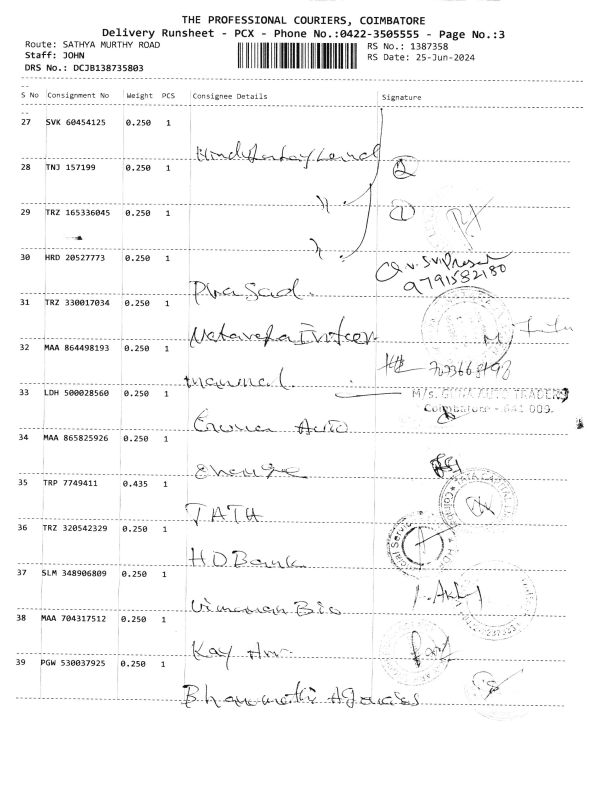 THE PROFESSIONAL COURIERS, COIMBATORE
Delivery Runsheet - PCX - Phone No.:0422-3505555 - Page No.:3
Route: SATHYA MURTHY ROAD
RS No.: 1387358
Staff: JOHN
RS Date: 25-Jun-2024
DRS No.: DCJB138735803
S No Consignment No Weight PCS Consignee Details Signature
27 SVK 60454125 0.250 1
28 TNJ 157199 0.250 1
29 TRZ 165336045 0.250 1
30 HRD 20527773 0.250 1
9791582180
Prasad.
31 TRZ 330017034 0.250 1
32 MAA 864498193 0.250 1
33 LDH 500028560 0.250 1
M/s. TRADERS
Coimbatore - 641 009.
Auto
34 MAA 865825926 0.250 1
35 TRP 7749411 0.435 1
TATA
36 TRZ 320542329 0.250 1
HD Bank
37 SLM 348906809 0.250 1
Bio
38 MAA 704317512 0.250 1
Kay
39 PGW 530037925 0.250 1
Bhanumathi Agencies